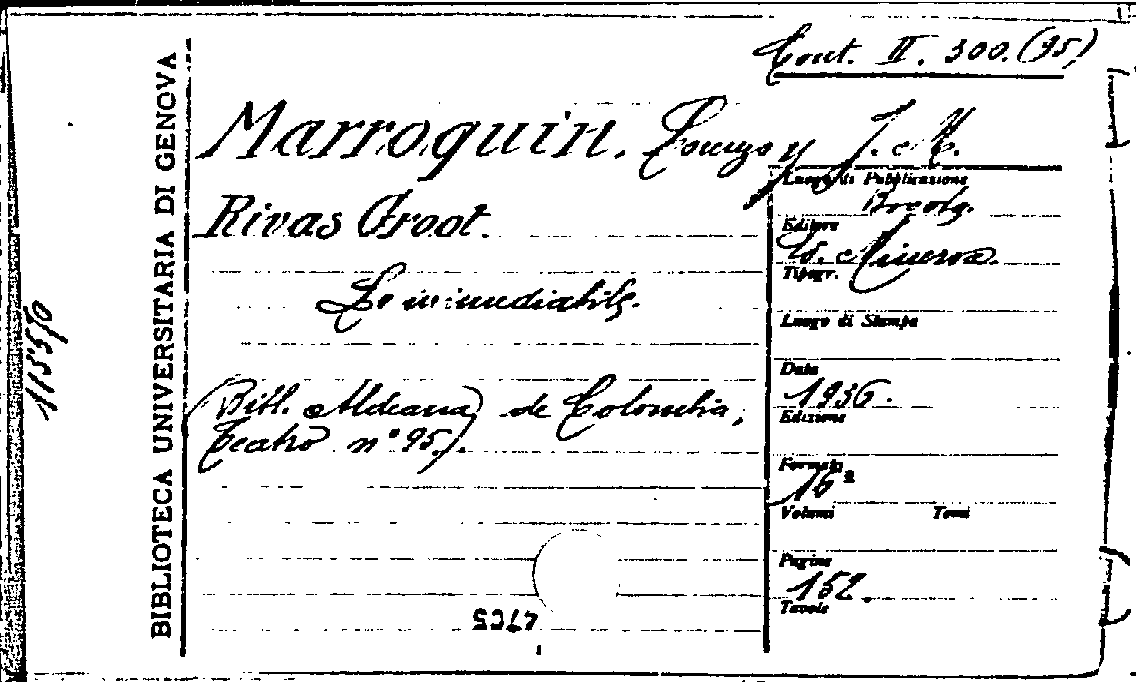 Cont. II. 300. (95)
Marroquin, Lorenzo y J. M.
Rivas Groot.
Lo irremediable.
(Bibl. Aldeana de Colombia,
Teatro n° 95).
BIBLIOTECA UNIVERSITARIA DI GENOVA
11550
Luogo di Pubblicazione
Bogotá.
Editore
Ed. Minerva.
Tipogr.
Luogo di Stampa
Data
1936.
Edizione
Formato
16°
Volumi Tomi
Pagine
152.
Tavole